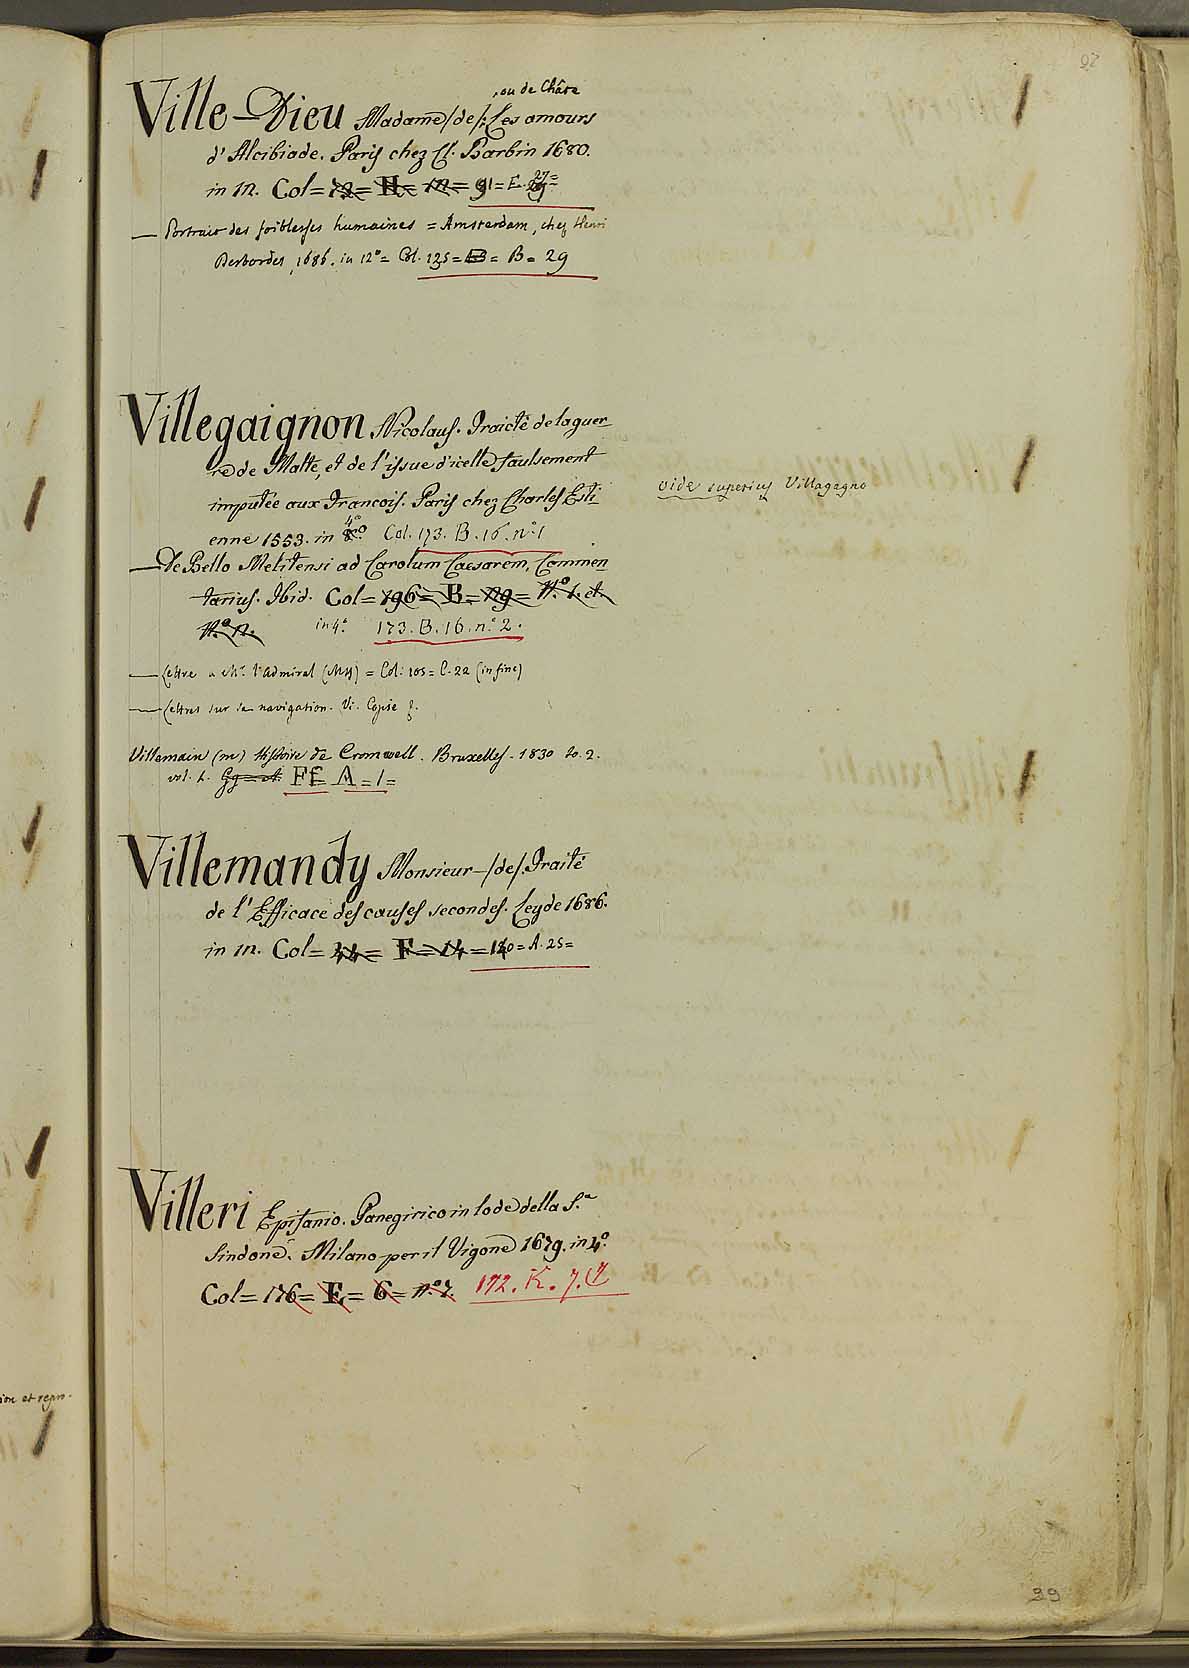 , ou de Châte
Ville-Dieu Madame /de/: Les amours
d'Alcibiade. Paris chez Cl. Barbin 1680.
in 12. Col = 91 = E. 27 =
— Portrait des foiblesses humaines = Amsterdam, chez Henri
Desbordes, 1686. in 12° = Col. 135 = B = 29
Villegaignon Nicolaus. Traicté de la guer
re de Malte, et de l'issue d'icelle faulsement
imputée aux Francois. Paris chez Charles Esti
enne 1553. in 4° Col. 173. B. 16. n° 1
— De Bello Melitensi ad Carolum Caesarem, Commen
tarius. Ibid. Col = 196 = B = 29 = N.° 1. et
N.° 2. in 4° 173. B. 16. n.° 2.
— Lettre a Mr. l'Admiral (MS) = Col: 105 = C. 22 (in fine)
— Lettres sur la navigation. Vi. Copie
vide superius Villagagno
Villemain (m) Histoire de Cromwell. Bruxelles. 1830 to. 2.
vol. 1. FF A = 1 =
Villemandy Monsieur /de/. Traité
de l'Efficace des causes secondes. Leyde 1686.
in 12. Col = 44 = F = 14 = 140 = A. 25 =
Villeri Epifanio. Panegirico in lode della S.a
Sindone. Milano per il Vigone 1679. in 4°.
Col = 176 = E = 6 = N.° 7. 172. K. 7.
ion et repro-
39